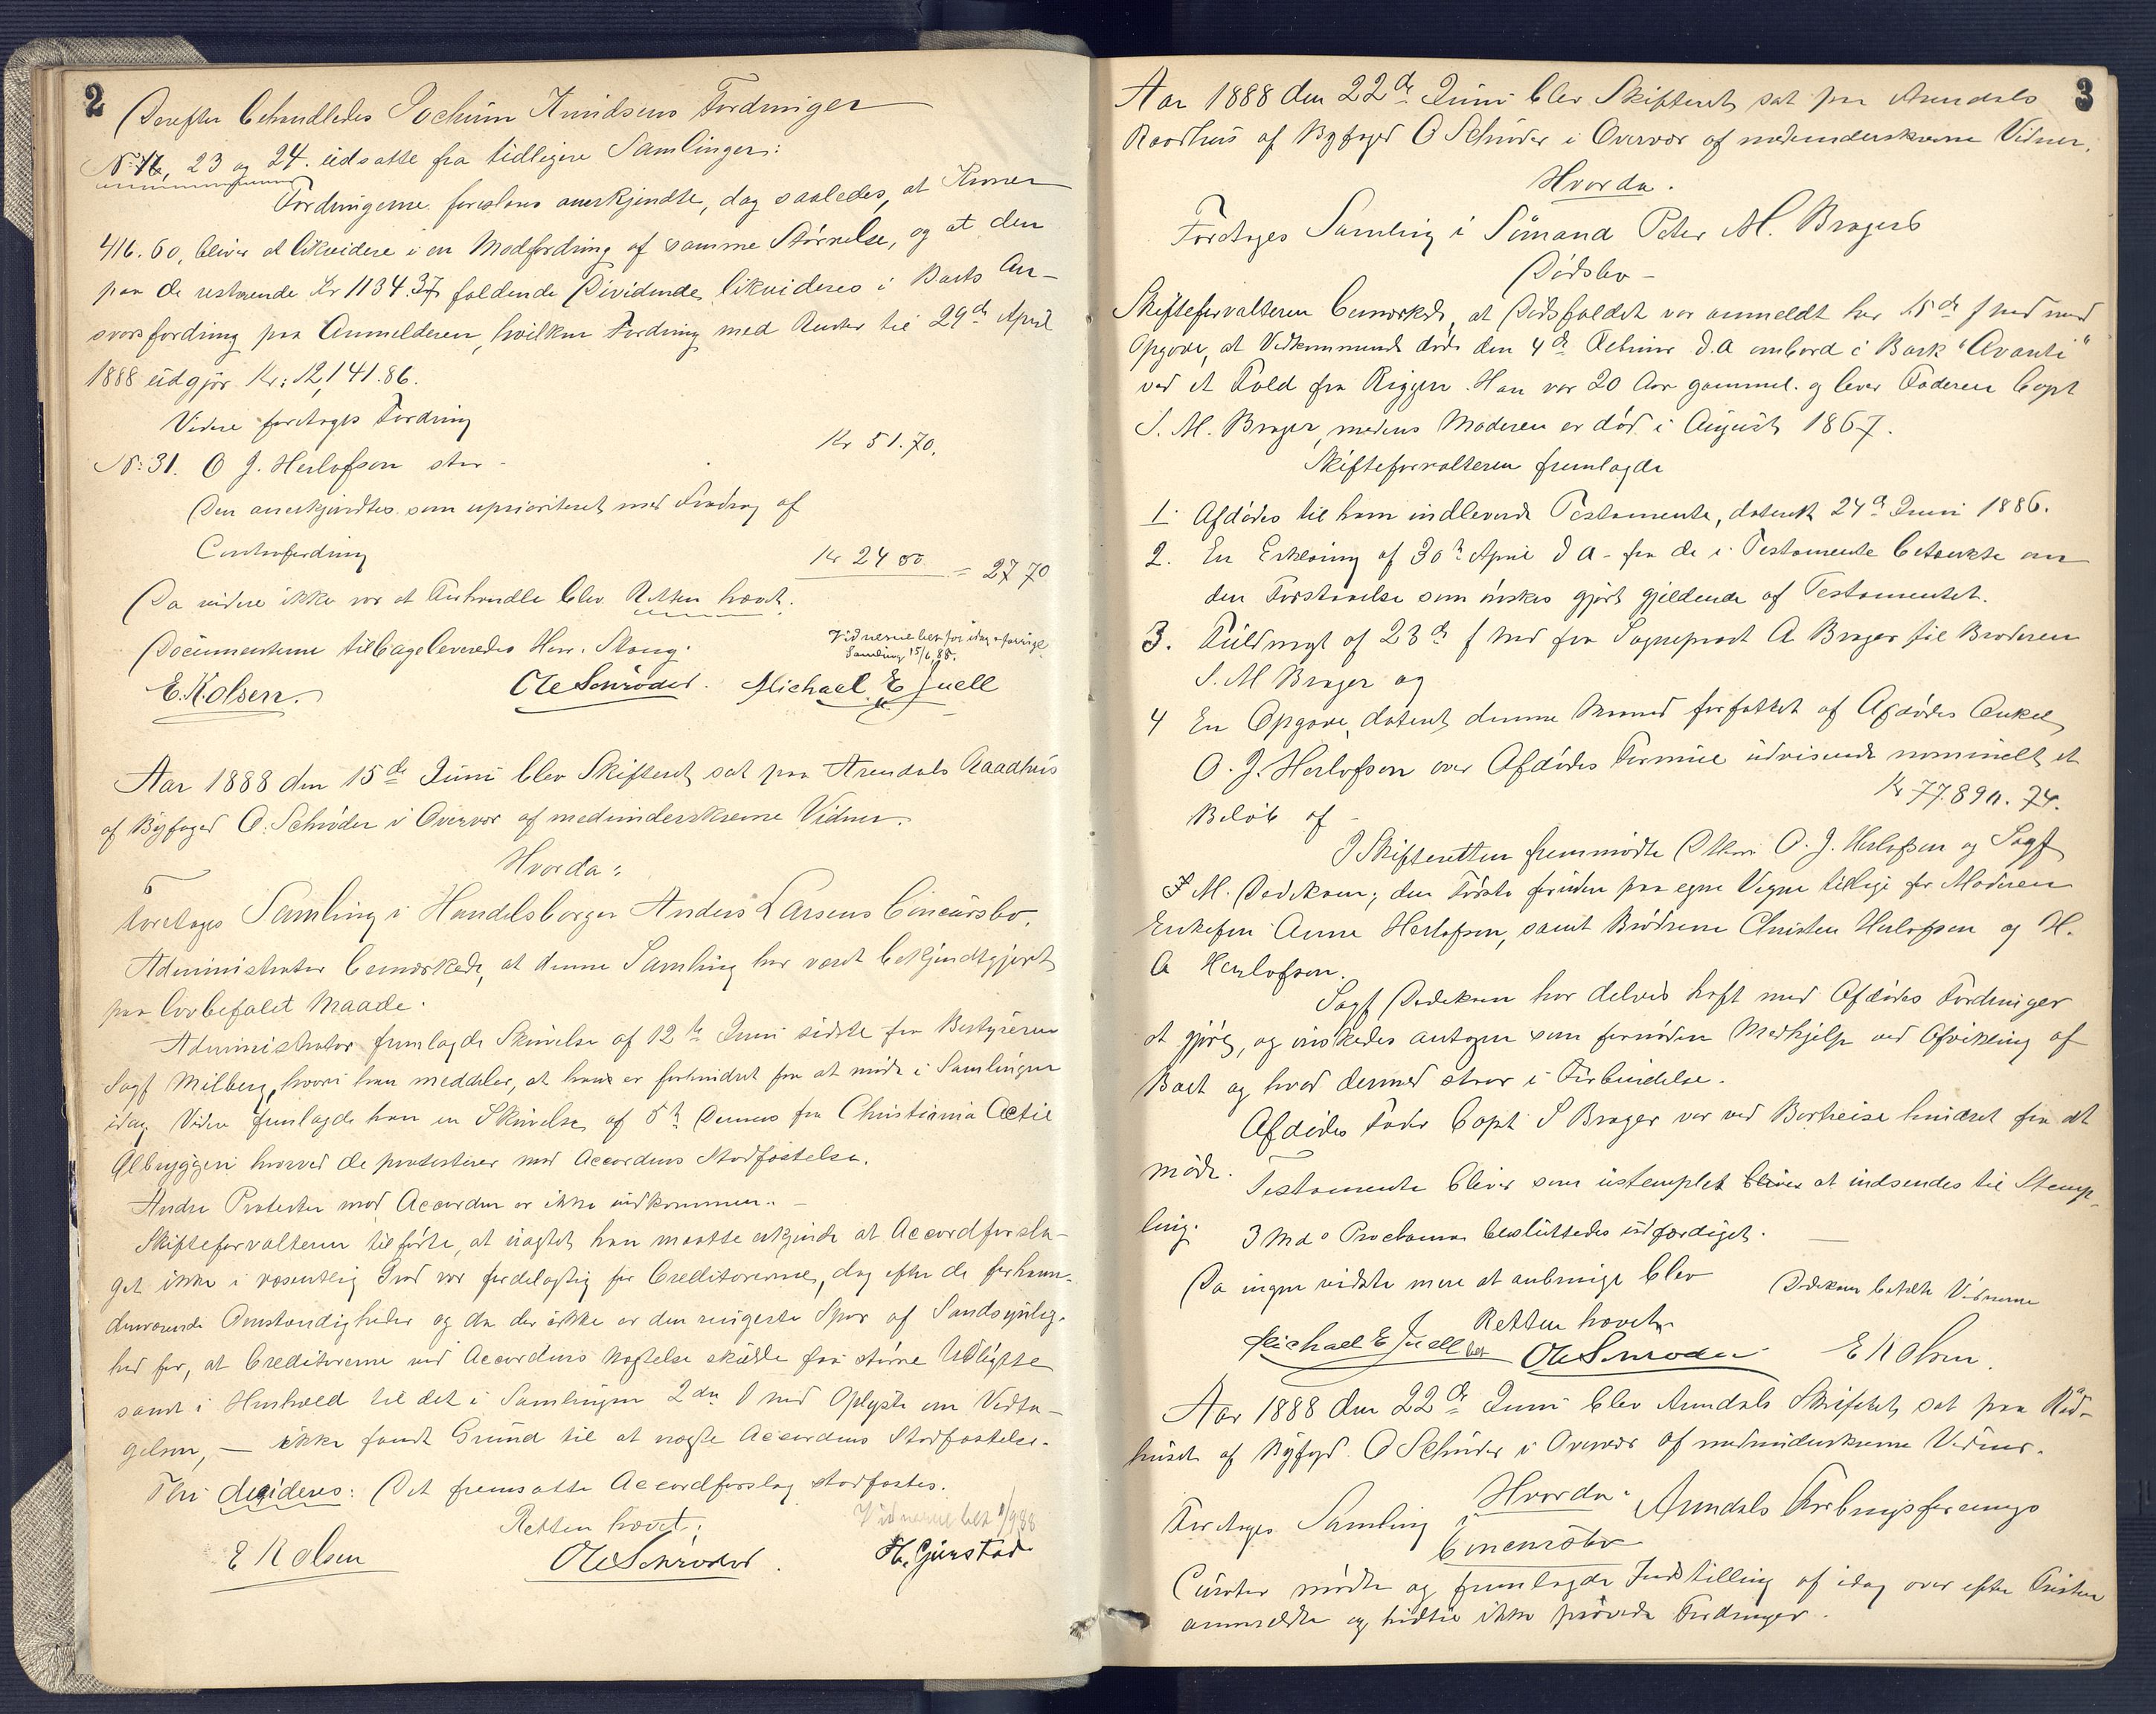 2
Derefter behandledes Jochum Knudsens Fordringer
No: 16, 23 og 24. udsatte fra tidligere Samlinger:
Fordringerne foreslaaes anerkjendte, dog saaledes, at Kroner
416.60, bliver at likvidere i en Modfordring af samme Størrelse, og at den
paa de resterende Kr 1134.37 faldende Dividende likvideres i Boets An-
svarsfordring paa Anmelderen, hvilken Fordring med Renter til 29de April
1888 udgjør Kr: 12,141.86.
Videre foretoges Fordring
No: 31. O J. Herlofson stor - Kr 51.70.
Den anerkjendtes som uprioriteret med Fradrag af
Contrafordring Kr 24 00 = 27 70
Da videre ikke var at forhandle blev Retten hævet.
Documenterne tilbageleveredes Hr. Stang.
Vidnerne bet for idag & forrige
Samling 15/6 88.
E. K. Olsen. Ole Schrøder. Michael E Juell
Aar 1888 den 15de Juni blev Skifteret sat paa Arendals Raadhus
af Byfoged O. Schrøder i Overvær af medunderskrevne Vidner.
Hvorda:
Foretoges Samling i Handelsborger Anders Larsens Concursbo.
Administrator bemærkede, at denne Samling har været bekjendtgjort
paa lovbefalet Maade.
Administrator fremlagde Skrivelse af 12te Juni sidste fra Bestyreren
Sagf Milberg, hvori han meddeler, at han er forhindret fra at møde i Samlingen
idag. Videre fremlagde han en Skrivelse af 5te Dennes fra Christiania Actie
Ølbryggeri hvorved de protesterer mod Accordens Stadfæstelse.
Andre Protester mod Accorden er ikke indkommen. -
Skifteforvalteren tilførte, at uagtet han maatte erkjende at Accordforsla-
get ikke i væsentlig Grad var fordelagtig for Creditorerne, dog efter de forhaan-
denværende Omstændigheder og da der ikke er den ringeste Spor af Sandsynlig-
hed for, at Creditorerne ved Accordens Nægtelse skulde faa større Udlighte
samt i Henhold til det i Samlingen 2den d Md Oplyste om Vedta-
gelsen, - ikke fandt Grund til at nægte Accordens Stadfæstelse.
Thi decideres: Det fremsatte Accordforslag stadfæstes.
Retten hævet. Vidnerne bet 1/9 88
E K Olsen Ole Schrøder. H. Gjerstad
3
Aar 1888 den 22de Juni blev Skifteret sat paa Arendals
Raadhus af Byfoged O Schrøder i Overvær af medunderskrevne Vidner.
Hvorda.
Foretoges Samling i Sømand Peter M. Bragers
Dødsbo -
Skifteforvalteren bemærkede, at Dødsfaldet var anmeldt her 15de f Md med
Opgave, at Vedkommende døde den 4de Februar d.A ombord i Bark "Avanti"
ved et Fald fra Riggen. Han var 20 Aar gammel. og lever Faderen Capt
S. M. Brager, medens Moderen er død i August 1867.
Skifteforvalteren fremlagde
1. Afdødes til ham indleverede Testamente, dateret 24de Juni 1886.
2. En Erklæring af 30te April d A - fra de i Testamente betænkte om
den Forstaaelse som ønskes gjort gjeldende af Testamentet.
3. Fuldmagt af 23de f Md fra Sogneprest A Brager til Broderen
S. M Brager og
4 En Opgave, dateret denne Maaned forfattet af Afdødes Onkel
O. J. Herlofson over Afdødes Formue udvisende nominelt et
Beløb af - Kr 77.890. 74.
I Skifteretten fremmødte D'Hrr O. J. Herlofson og Sagf
F M. Dedekam; den Første foruden paa egne Vegne tillige for Moderen
Enkefru Anne Herlofson, samt Brødrene Christen Herlofson og H.
A Herlofson.
Sagf Dedekam har delvis haft med Afdødes Fordringer
at gjøre, og ønskedes antagen som fornøden Medhjelp ved Afvikling af
Boet og hvad dermed staar i Forbindelse.
Afdødes Fader Capt S Brager var ved Bortreise hindret fra at
møde.
Testamente bliver som ustemplet bliver at indsendes til Stemp-
ling.
3 Mds Proclama besluttedes udfærdiget. -
Da ingen vidste mere at anbringe blev
Dedekam betalte Vidnerne
Retten hævet.
Michael E Juell bet Ole Schrøder E K Olsen.
Aar 1888 den 22de Juni blev Arendals Skifteret sat paa Råd-
huset af Byfogd. O Schrøder i Overvær af medunderskrevne Vidner.
Hvorda.
Foretoges Samling i Arendals Forbrugsforenings
Concursbo
Curator mødte og fremlagde Indstilling af idag over efter Fristen
anmeldte og hidtil ikke prøvede Fordringer.